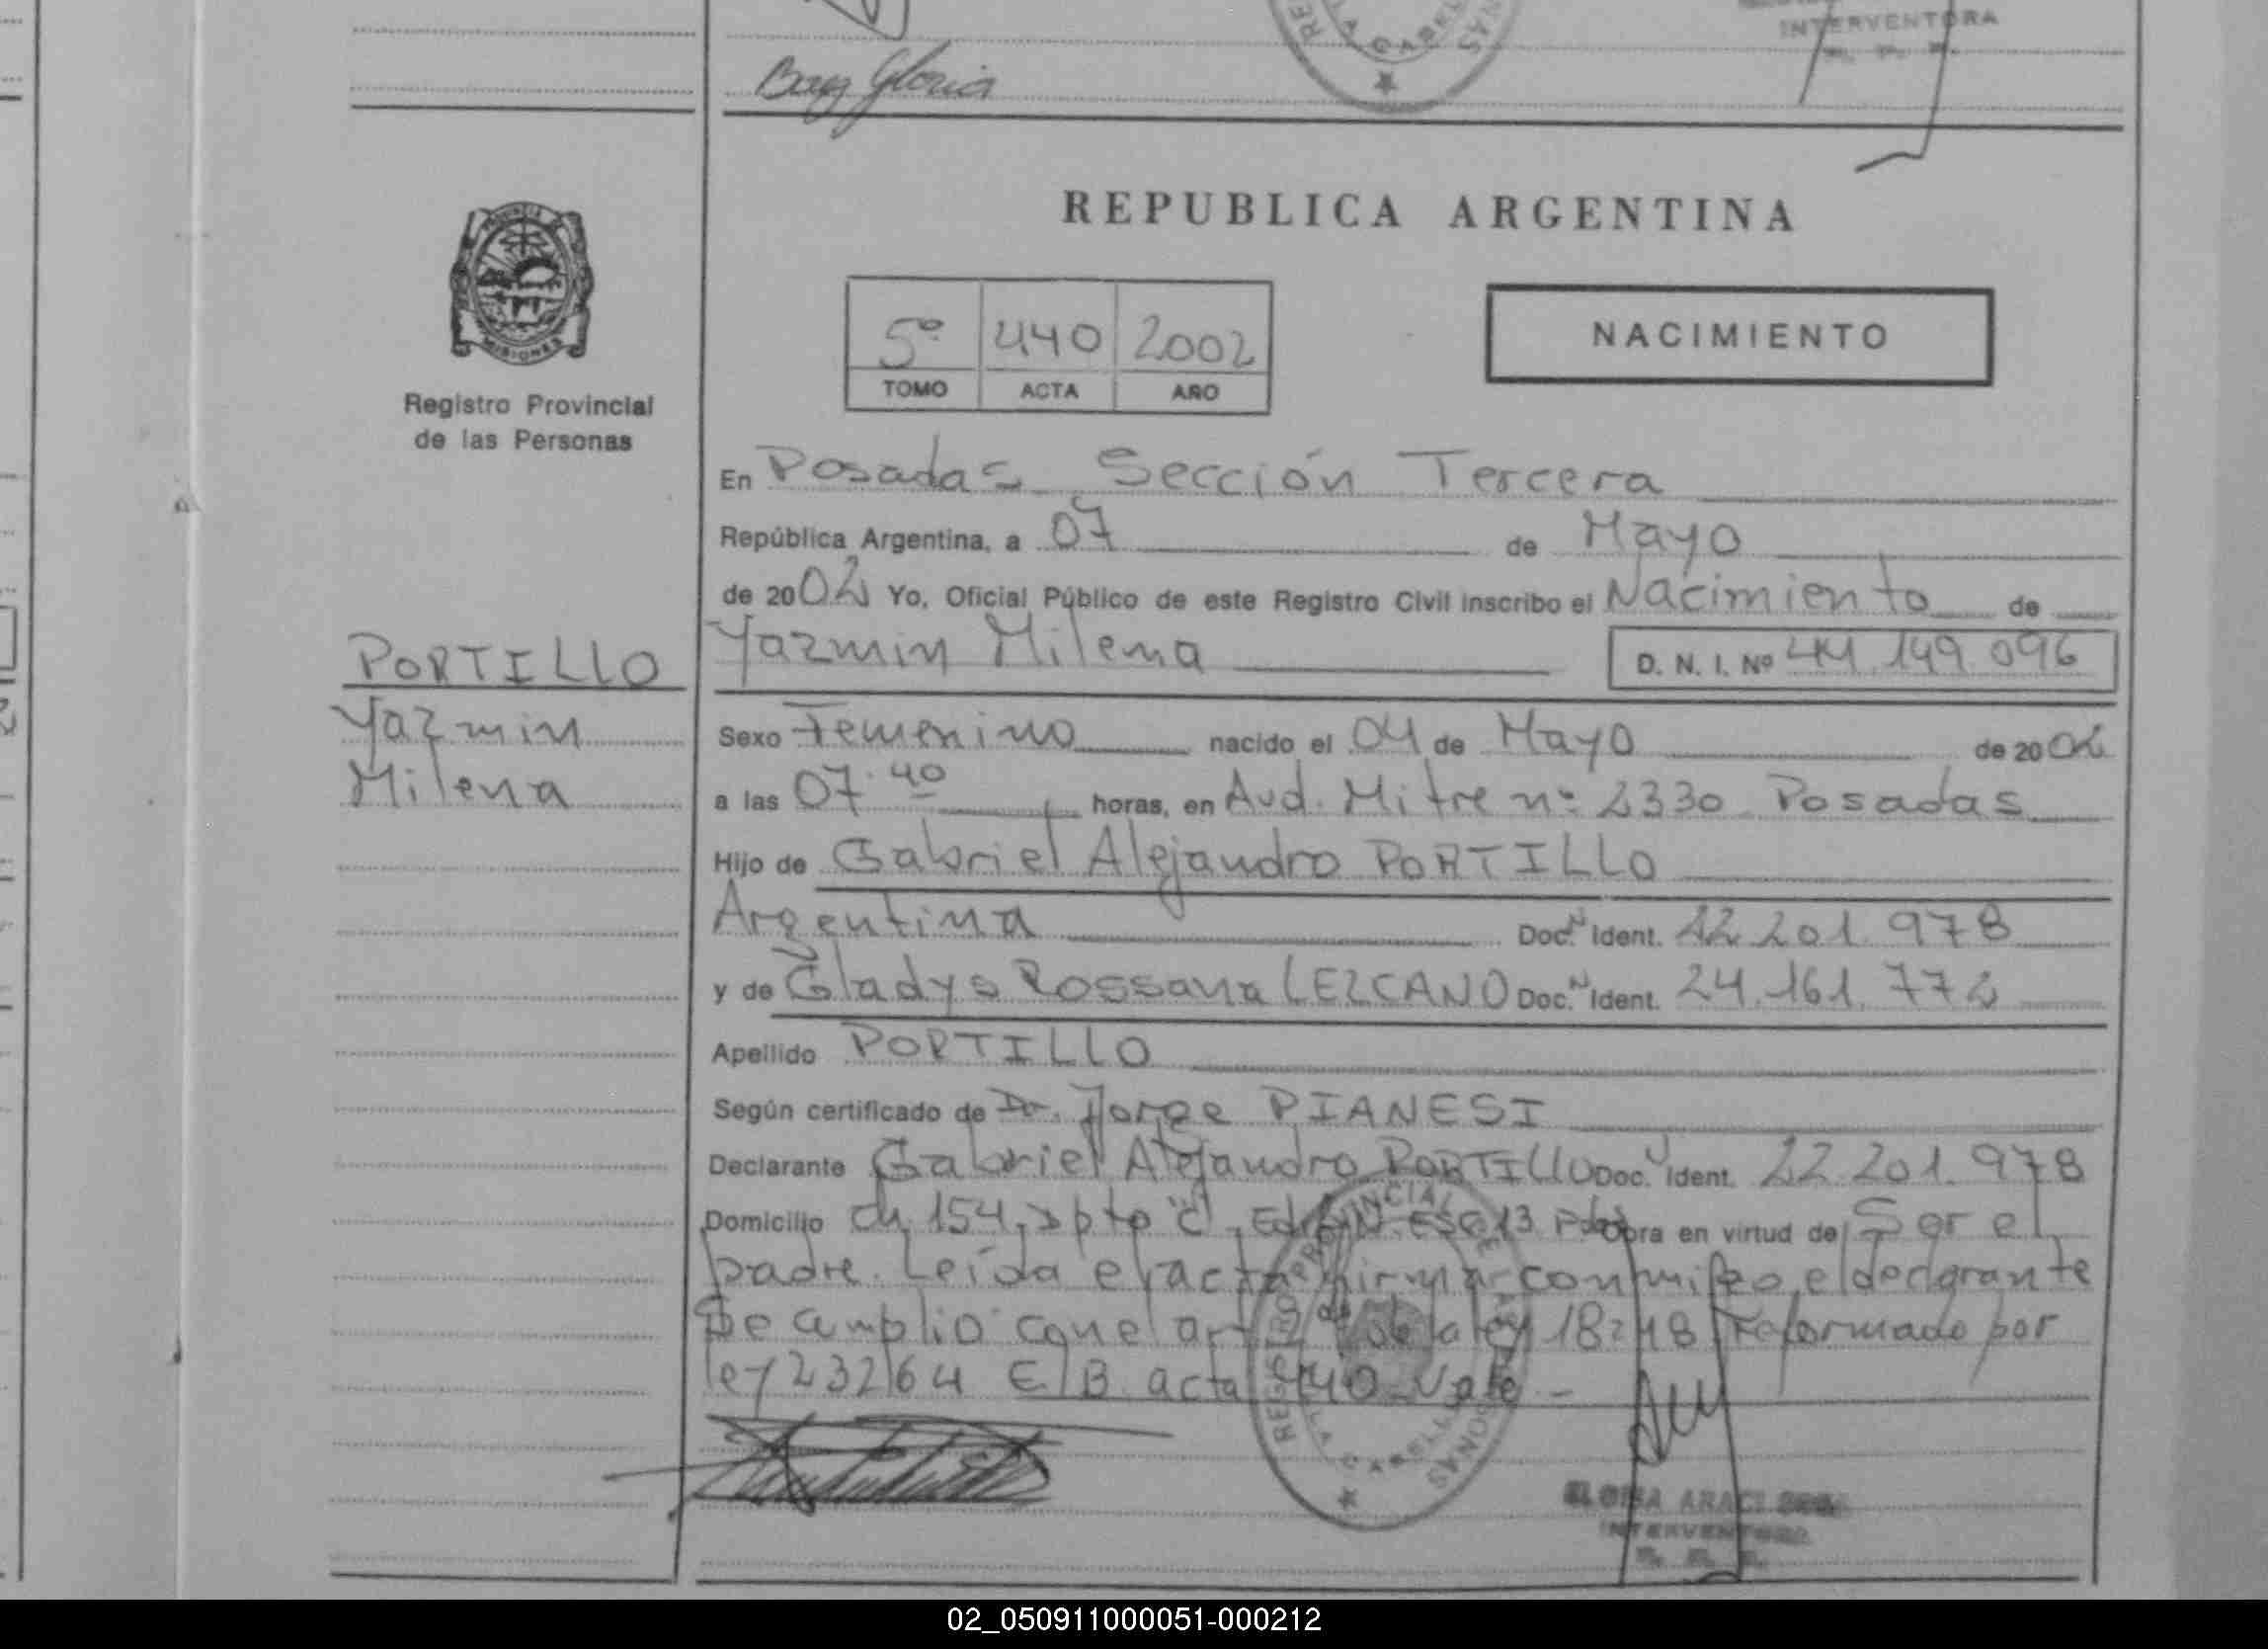 INTERVENTORA
Bag Gloria
REPUBLICA ARGENTINA
PROVINCIA DE
MISIONES
5º 440 2002
TOMO ACTA AÑO
NACIMIENTO
Registro Provincial
de las Personas
En Posadas Sección Tercera
República Argentina, a 07 de Mayo
de 2002 Yo, Oficial Público de este Registro Civil inscribo el Nacimiento de
PORTILLO
Yazmin Milena D. N. I. Nº 44.149.096
Yazmin
Milena
Sexo Femenino nacido el 04 de Mayo de 2002
a las 07.40 horas, en Avd. Mitre nº 2330 Posadas
Hijo de Gabriel Alejandro PORTILLO
Argentina Doc. Ident. 22.201.978
y de Gladys Rossana LEZCANO Doc. Ident. 24.161.772
Apellido PORTILLO
Según certificado de Dr. Jorge PIANESI
Declarante Gabriel Alejandro PORTILLO Doc. Ident. 22.201.978
Domicilio Ch. 154, Dpto "C", Esc 13 Obra en virtud de Ser el
padre. Leída el acta firma conmigo el declarante
Se cumplio con el art 2º de la ley 18248 reformado por
ley 23264 E/B. acta 440 Vale -
REGISTRO PROVINCIAL DE LAS PERSONAS
VILLA CABELLO
ELOISA ARACI
INTERVENTORA
02_050911000051-000212